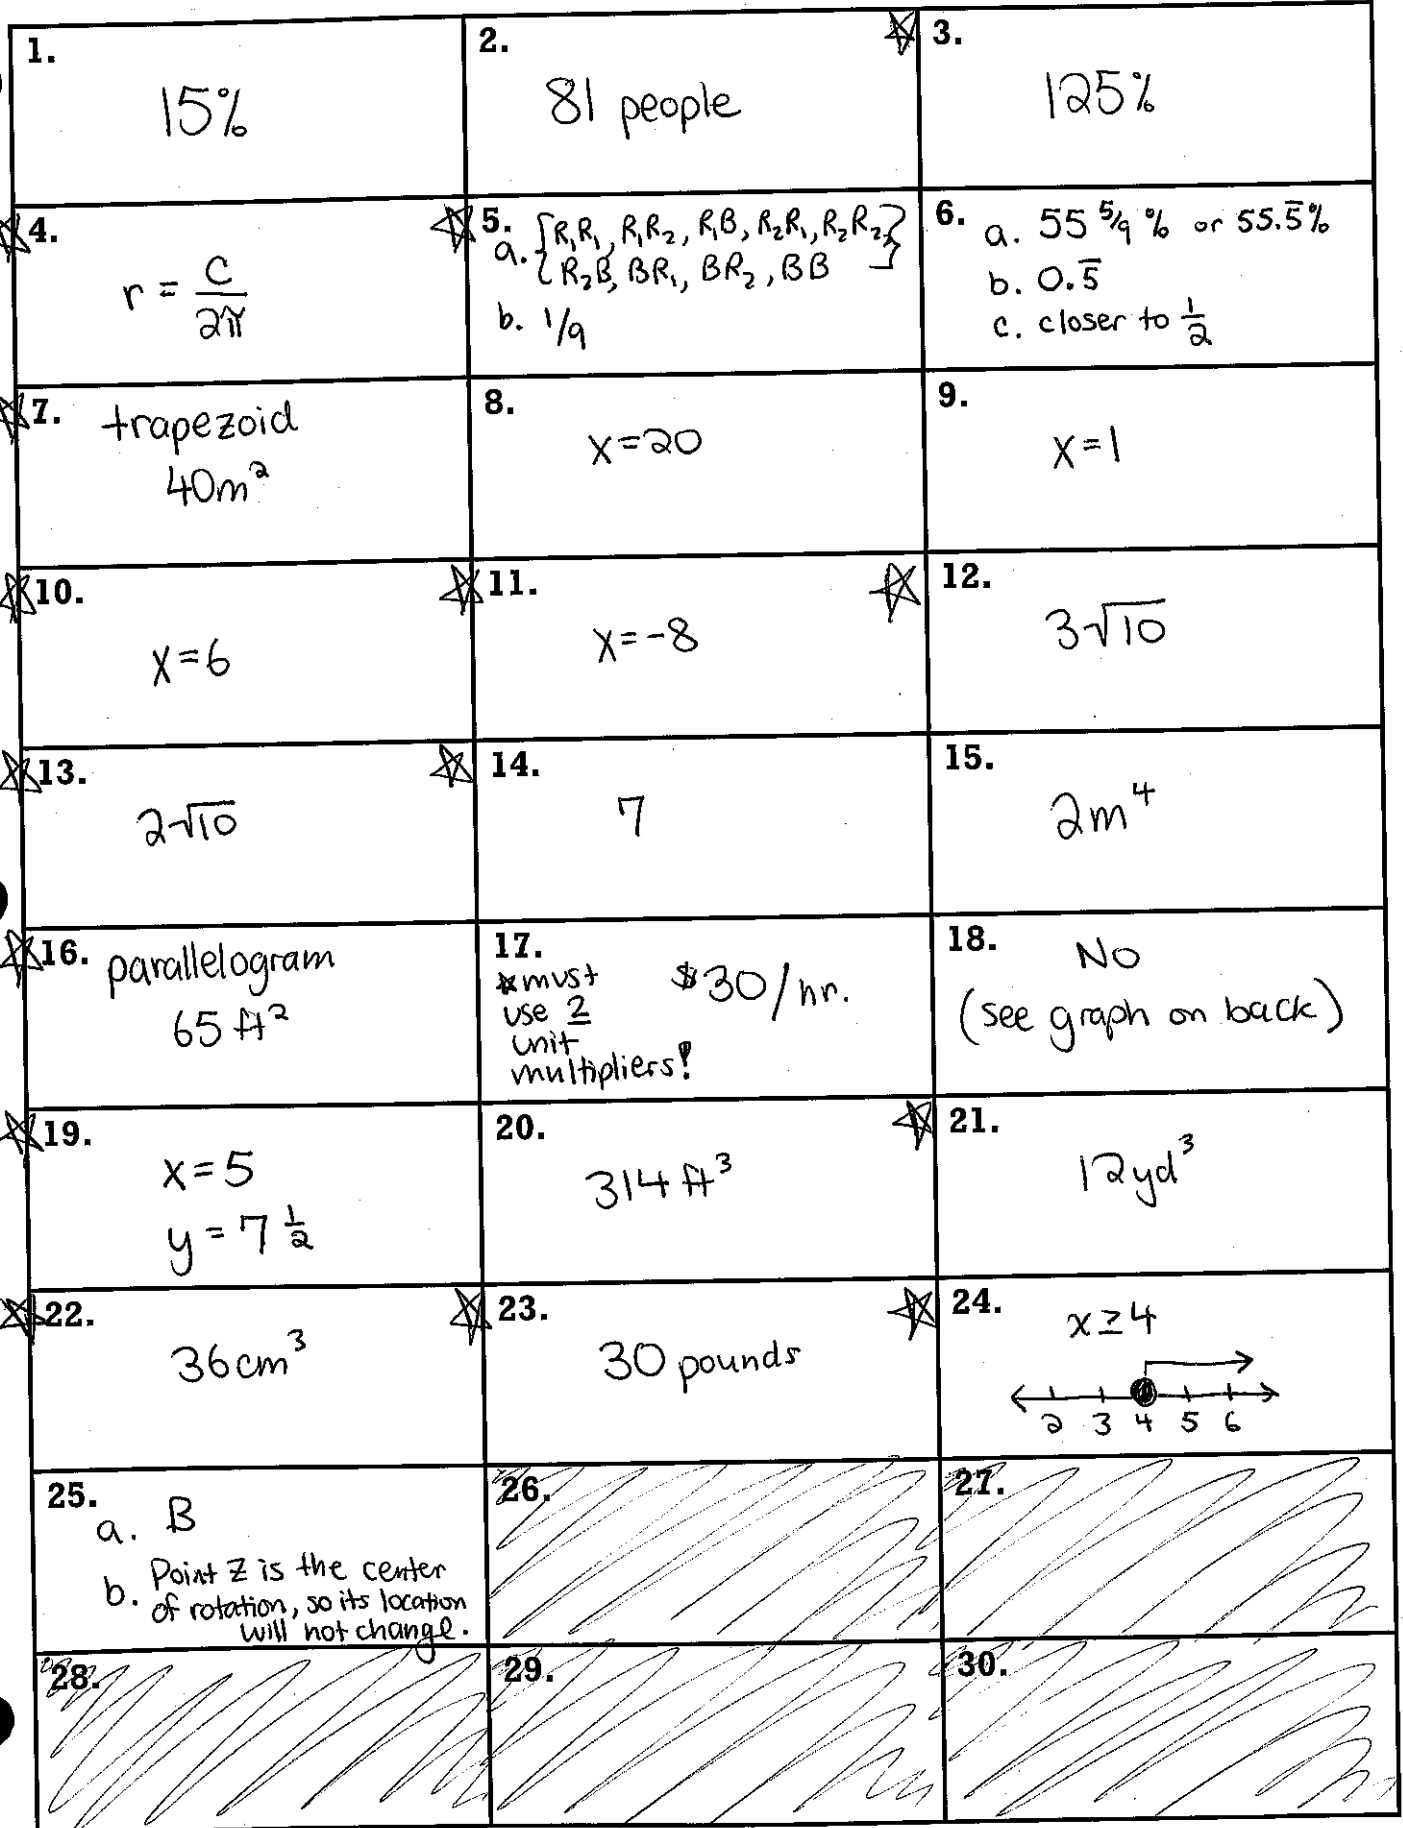 1.
15%
2.
81 people
3.
125%
4.
r = C/2π
5.
a. {R₁R₁, R₁R₂, R₁B, R₂R₁, R₂R₂,
R₂B, BR₁, BR₂, BB}
b. 1/9
6.
a. 55 5/9 % or 55.5̅%
b. 0.5̅
c. closer to 1/2
7. trapezoid
40m²
8.
x=20
9.
x=1
10.
x=6
11.
x=-8
12.
3√10
13.
2√10
14.
7
15.
2m⁴
16. parallelogram
65 ft²
17.
*must
use 2
unit
multipliers!
$30/hr.
18. No
(see graph on back)
19.
x=5
y=7 1/2
20.
314 ft³
21.
12yd³
22.
36cm³
23.
30 pounds
24.
x≥4
2 3 4 5 6
25.
a. B
b. Point Z is the center
of rotation, so its location
will not change.
26.
27.
28.
29.
30.